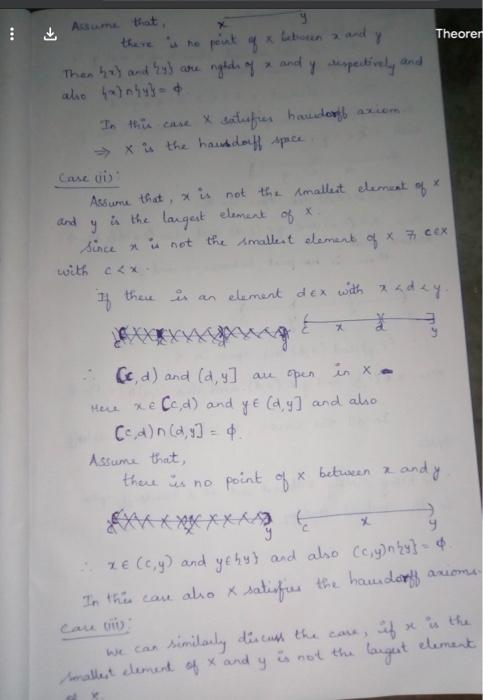 Theorem
Assume that,
x y
there is no point of x between x and y
Then {x} and {y} are nghds of x and y respectively and
also {x} ∩ {y} = φ
In this case X satisfies hausdorff axiom
⇒ X is the hausdorff space.
Case (ii):
Assume that, x is not the smallest element of x
and y is the largest element of x.
Since x is not the smallest element of x ∃ c∈x
with c < x.
If there is an element d∈x with x < d < y.
c x d y
∴ (c,d) and (d,y] are open in X
Here x ∈ (c,d) and y ∈ (d,y] and also
(c,d) ∩ (d,y] = φ.
Assume that,
there is no point of x between x and y
c x y
∴ x ∈ (c,y) and y ∈ {y} and also (c,y) ∩ {y} = φ.
In this case also X satisfies the hausdorff axioms.
Case (iii):
We can similarly discuss the case, if x is the
smallest element of X and y is not the largest element
of X.